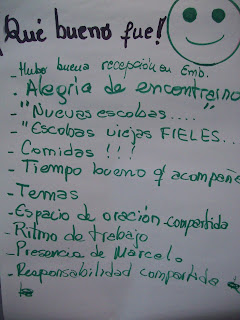 ¡Qué bueno fue!
- Hubo buena recepción su Emb.
- Alegría de encontrarno
- "Nuevas escobas...."
- "Escobas viejas FIELES...
- Comidas !!!
- Tiempo bueno q/ acompañ
- Temas
- Espacio de oración compartida
- Ritmo de trabajo
- Presencia de Marcelo
- Responsabilidad compartida